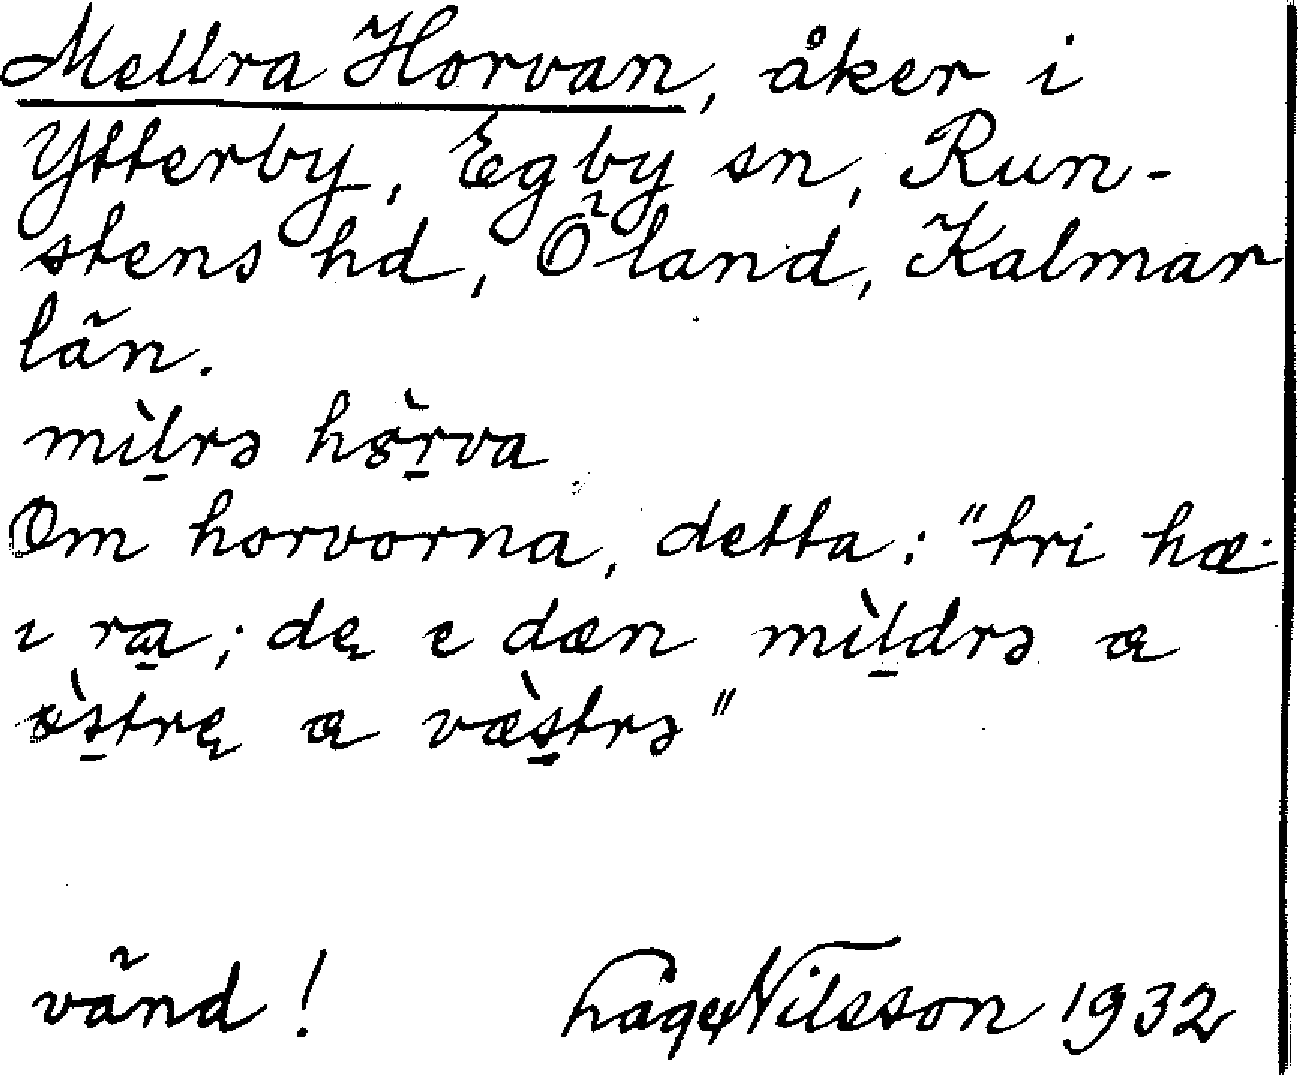 Mellra Horvan, åker i
Ytterby, Egby sn, Run-
stens hd, Öland, Kalmar
län.
mìl̠rə hɞ̀r̠va
Om horvorna, detta: "tri hæ·
ı ra̠; dę e dæn mìl̠drə æ
ɞ̀s̠trę æ væ̀s̠trə"
vänd! Nilsson 1932